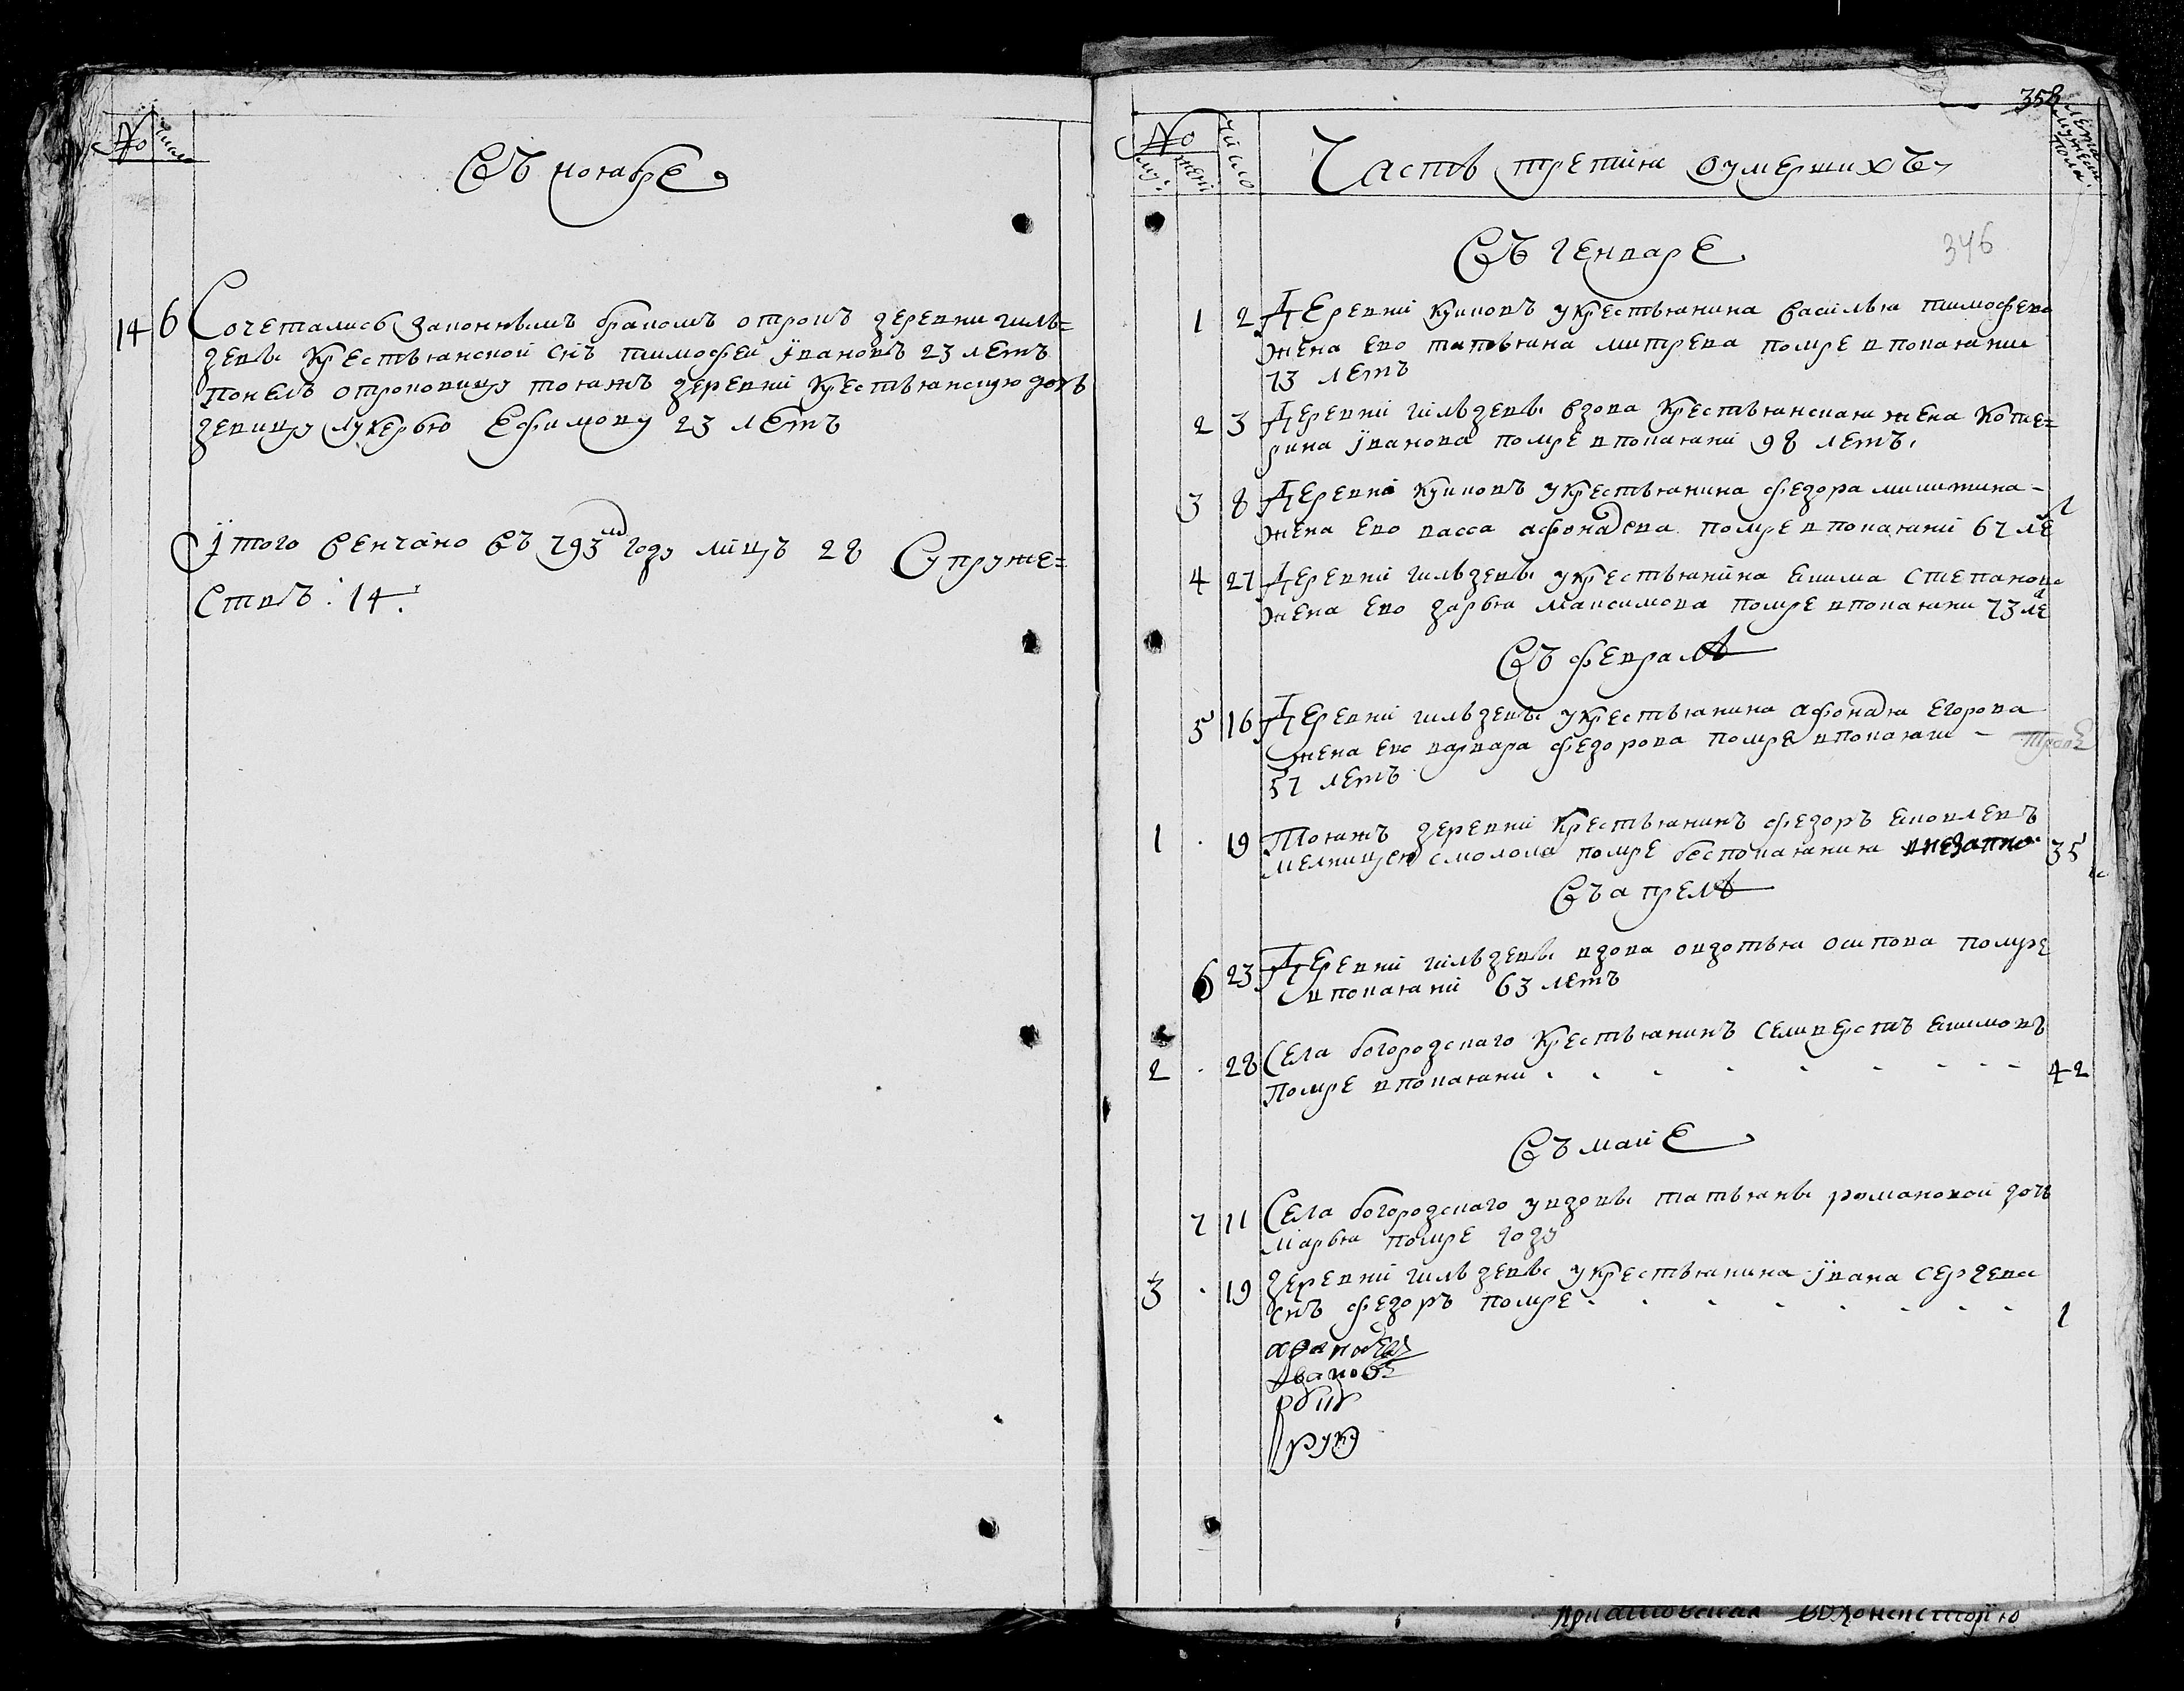 № число
Въ ноябре
14 6 Сочетались законнымъ бракомъ отрокъ деревни гиль=
девы крестьянской снъ тимофеи ївановъ 23 летъ
понелъ отроковицу тояжъ деревни крестьянскую дочь
девицу лукерью Ефимову 23 летъ
Їтого венчано въ 793м году лицъ 28 Супруже=
ствъ: 14.
358
№ муж: женс число Часть третия оумершихъ лета мужеск: пола
346
Въ генваре
1 2 Деревни куиковъ укрестьянина василья тимофева
жена ево татьяна митрева помре впокаянии
73 летъ
2 3 Деревни гильдевы вдова крестьянская жена Кате=
рина їванова помре впокаянии 98 летъ.
3 8 Деревни куиковъ укрестьянина федора микитина -
жена ево васса афонасева помре впокаянии 67 ле
4 27 Деревни гильдевы укрестьянина екима степанова
жена ево дарья максимова помре впокаянии 73 ле
Въ феврале
5 16 Деревни гильдевы укрестьянина афонася Егорова
жена ево варвара федорова помре впокаянии -
57 летъ
1 19 Тояжъ деревни крестьянинъ федоръ ековлевъ
мелницею смолола помре беспокаяния внезапно 35
Въ апреле
6 23 Деревни гильдевы вдова овдотья осипова помре
впокаянии 63 летъ
2 28 Села богородскаго крестьянинъ селиверстъ екимовъ
помре впокаянии 42
Въ маие
7 11 Села богородскаго увдовы татьяны романовой дочь
марья помре году
3 19 деревни гильдевы укрестьянина їvана сергева
снъ федоръ помре 1
їванов
руку
вохонсисторїю